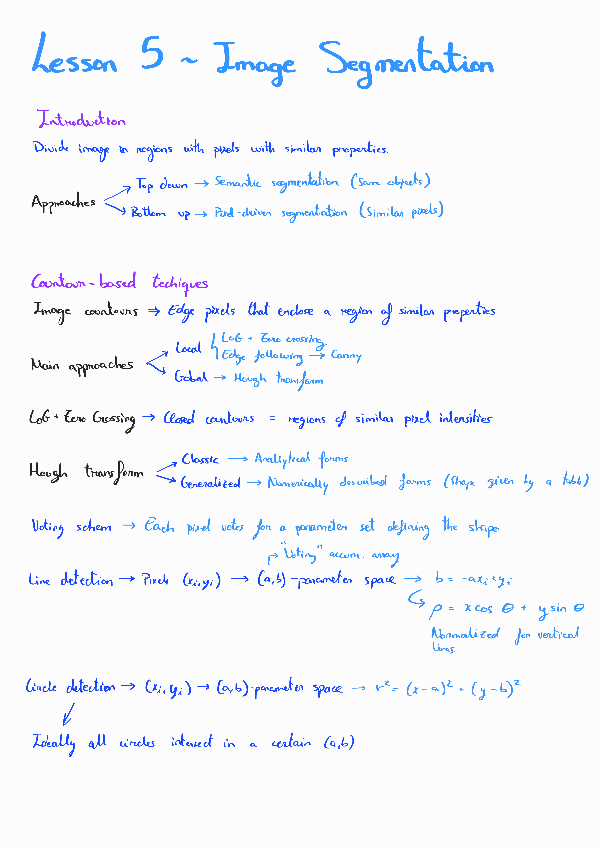 Lesson 5 ~ Image Segmentation
Introduction
Divide image in regions with pixels with similar properties.
Top down → Semantic segmentation (Same objects)
Approaches
Bottom up → Pixel-driven segmentation (Similar pixels)
Countour-based techiques
Image countours ⇒ Edge pixels that enclose a region of similar properties
LoG + Zero crossing.
Local
Edge following → Canny
Main approaches
Global → Hough transform
LoG + Zero Crossing → Closed countours = regions of similar pixel intensities
Classic → Analytical forms
Hough transform
Generalized → Numerically described forms (Shape given by a table)
Voting schem → Each pixel votes for a parameter set defining the shape
→ "Voting" accum. array
Line detection → Pixels (xi,yi) → (a,b)-parameter space → b = -axi+yi
ρ = x cos θ + y sin θ
Normalized for vertical
lines.
Circle detection → (xi,yi) → (a,b)-parameter space → r² = (x-a)² + (y-b)²
Ideally all circles intersect in a certain (a,b)